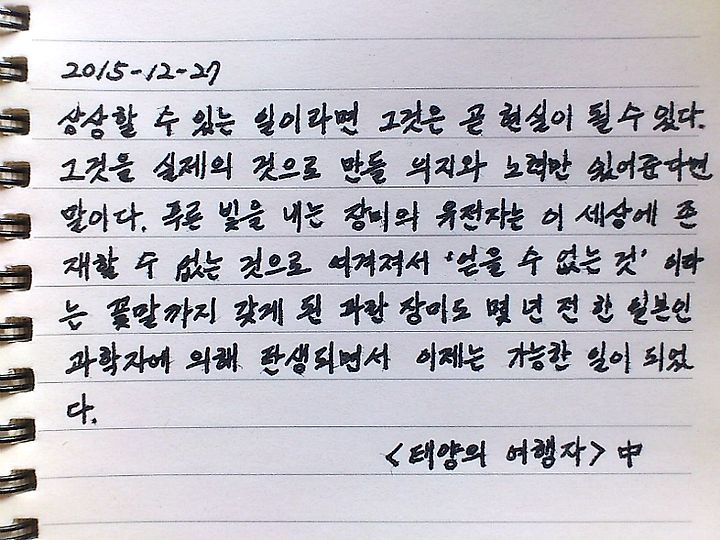 2015-12-27
상상할 수 있는 일이라면 그것은 곧 현실이 될 수 있다.
그것을 실제의 것으로 만들 의지와 노력만 있어준다면
말이다. 푸른 빛을 내는 장미의 유전자는 이 세상에 존
재할 수 없는 것으로 여겨져서 '얻을 수 없는 것' 이라
는 꽃말까지 갖게 된 파란 장미도 몇 년 전 한 일본인
과학자에 의해 탄생되면서 이제는 가능한 일이 되었
다.
<태양의 여행자> 中